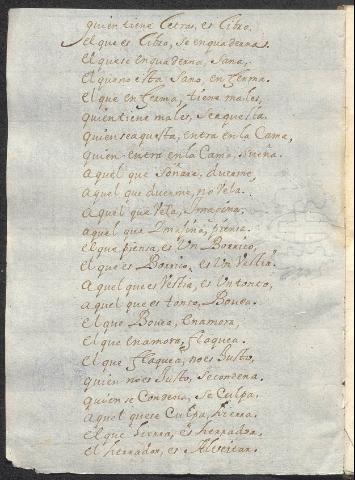 quien tiene Letras, es Libro,
el que es Libro, se enquaderna.
el que se enquaderna, Sana,
el que no esta Sano, enferma.
el que enferma, tiene males,
quien tiene males, se aquesta.
quien se aquesta, entra en la Cama,
quien entra en la Cama, sueña.
aquel que soñare, duerme,
aquel que duerme, no Vela.
aquel que Vela, Imagina,
aquel que Imagina, piensa.
el que piensa, es Un Borrico,
el que es Borrico, es Un Vestia.
aquel que es Vestia, es Un tonto,
aquel que es tonto, Bovea.
el que Bovea, Enamora,
el que enamora, flaquea.
el que flaquea, no es Justo,
quien no es Justo, se condena.
quien se Condena, se Culpa,
aquel que se Culpa, hierra.
el que hierra, es herrador,
el herrador, es Alveitar.